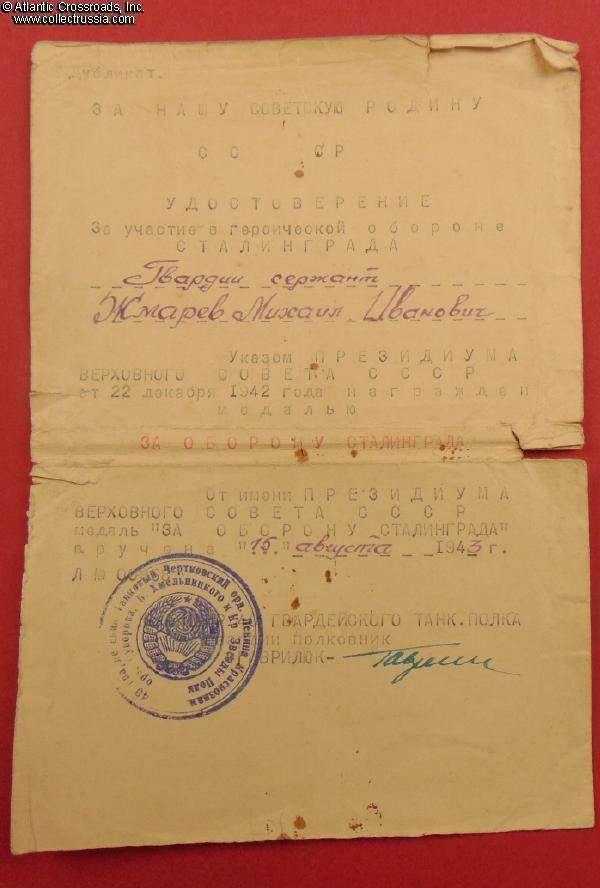 © Atlantic Crossroads, Inc.
www.collectrussia.com
Дубликат.
ЗА НАШУ СОВЕТСКУЮ РОДИНУ
СС СР
УДОСТОВЕРЕНИЕ
За участие в героической обороне
СТАЛИНГРАДА
Гвардии сержант
Жмарев Михаил Иванович
Указом ПРЕЗИДИУМА
ВЕРХОВНОГО СОВЕТА СССР
от 22 декабря 1942 года награжден
медалью
ЗА ОБОРОНУ СТАЛИНГРАДА
От имени ПРЕЗИДИУМА
ВЕРХОВНОГО СОВЕТА СССР
медаль "ЗА ОБОРОНУ СТАЛИНГРАДА"
вручена "15" августа 1943 г.
Л №
ГВАРДЕЙСКОГО ТАНК. ПОЛКА
полковник
ВРИЛЮК-
40 Танковый Чертковский орд. Ленина Краснознам.
орд. Суворова, Б. Хмельницкого и Кр. Звезды Полк